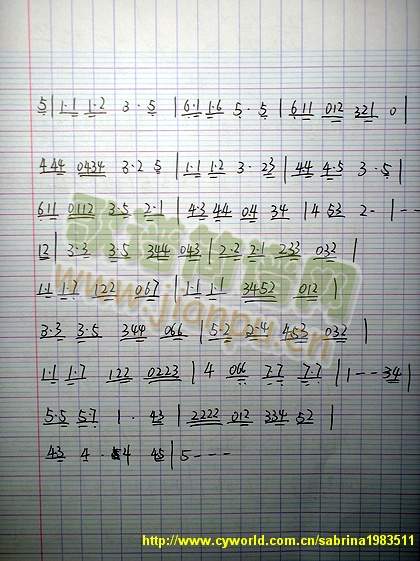 5 | 1·1 1·2 3· 5 | 6·1 1·6 5· 5 | 611 012 321 0 |
444 0434 3·2 5 | 1·1 1·2 3· 23 | 44 4·5 3· 5 |
611 0112 3·5 2·1 | 4·3 44 04 34 | 4 53 2- | --
12 | 3·3 3·5 344 043 | 2·2 2·1 233 032 |
1·1 1·7 122 067 | 1·1 1·1 3452 012 |
3·3 3·5 344 066 | 5·2 2·4 453 032 |
1·1 1·7 122 0223 | 4 066 7·7 7·7 | 1---34 |
5·5 5·7 1· 43 | 2222 012 334 52 |
43 4· 4 45 | 5---
www.jianpu.cn
http://www.cyworld.com.cn/sabrina1983511